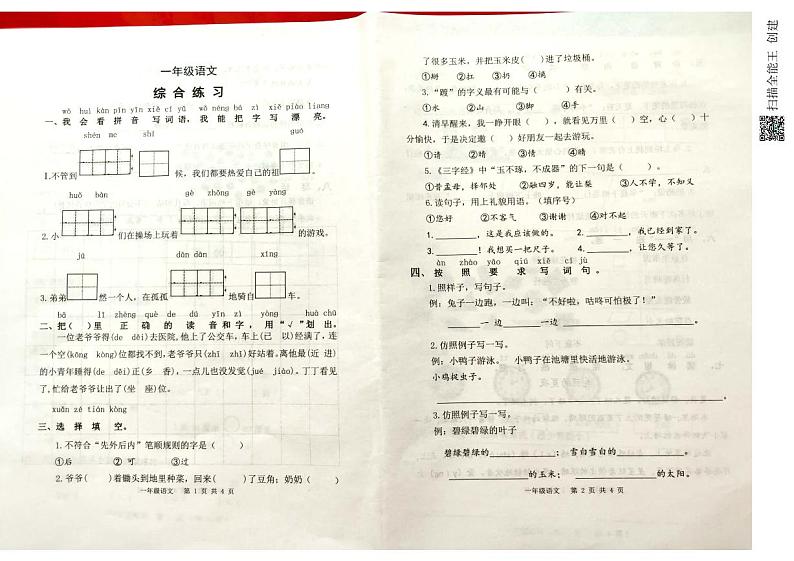 一年级语文
综 合 练 习
wǒ huì kàn pīn yīn xiě cí yǔ wǒ néng bǎ zì xiě piào liang
一、我 会 看 拼 音 写 词 语，我 能 把 字 写 漂 亮。
shén me shí guó
1.不管到 候，我们都要热爱自己的祖 。
huǒ bàn gè zhǒng gè yàng
2.小 们在操场上玩着 的游戏。
jū dān dān xíng
3.弟弟 然一个人，在孤孤 地骑自 车。
bǎ lǐ zhèng què de dú yīn zì yòng huà chū
二、把( )里 正 确 的 读 音 和 字，用 “√” 划 出。
一位老爷爷得(de děi)去医院,他上了公交车,车上(已 以)经满了,连
一个空(kōng kòng)位都找不到,老爷爷只(zhī zhǐ)好站着。离他最(近 进)
的小青年睡得(de děi)正(乡 香)，一点儿也没发觉(jué jiào)。丁丁看见
了,忙给老爷爷让出了(坐 座)位。
xuǎn zé tián kòng
三、选 择 填 空。
1.不符合“先外后内”笔顺规则的字是( )
①后 ② 可 ③过
2.爷爷( )着锄头到地里种菜，回来( )了豆角；奶奶( )
一年级语文 第 1 页 共 4 页
了很多玉米，并把玉米皮( )进了垃圾桶。
①掰 ②扛 ③扔 ④摘
3.“踱”的字义最有可能与( )有关。
①水 ②山 ③脚 ④手
4.清早醒来，我一睁开眼( )，就看见万里( )空，心( )十
分愉快，于是决定邀( )好朋友一起去游玩。
①请 ②晴 ③情 ④睛
5.《三字经》中“玉不琢，不成器”的下一句是( )。
①昔孟母，择邻处 ②融四岁，能让梨 ③人不学，不知义
6.读句子，用上礼貌用语。（填序号）
①您好 ②不客气 ③谢谢 ④对不起
1.________，这是我应该做的。 2.________，我已经到家了。
3.________！我想买一把尺子。 4.________，让您久等了。
àn zhào yāo qiú xiě cí jù
四、按 照 要 求 写 词 句。
1.照样子，写句子。
例：兔子一边跑，一边叫：“不好啦，咕咚可怕极了！”
________一 边________一边 ________________。
2.仿照例子写一写。
例：小鸭子游泳。 小鸭子在池塘里快活地游泳。
小鸡捉虫子。________________________
3.仿照例子写一写。
例：碧绿碧绿的叶子
碧绿碧绿的____________； 雪白雪白的____________。
____________的玉米；____________的太阳。
一年级语文 第 2 页 共 4 页
扫描全能王 创建